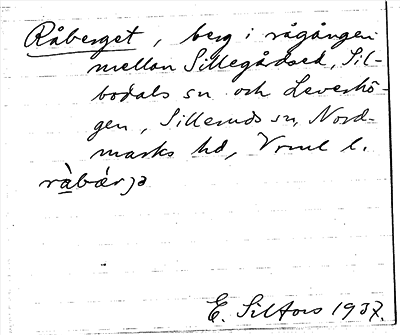 Råberget, berg i rågången
mellan Sillegårdsed, Sil-
bodals sn och Leverhö-
gen, Silleruds sn, Nord-
marks hd, Vrml l.
E. Silfors 1937.